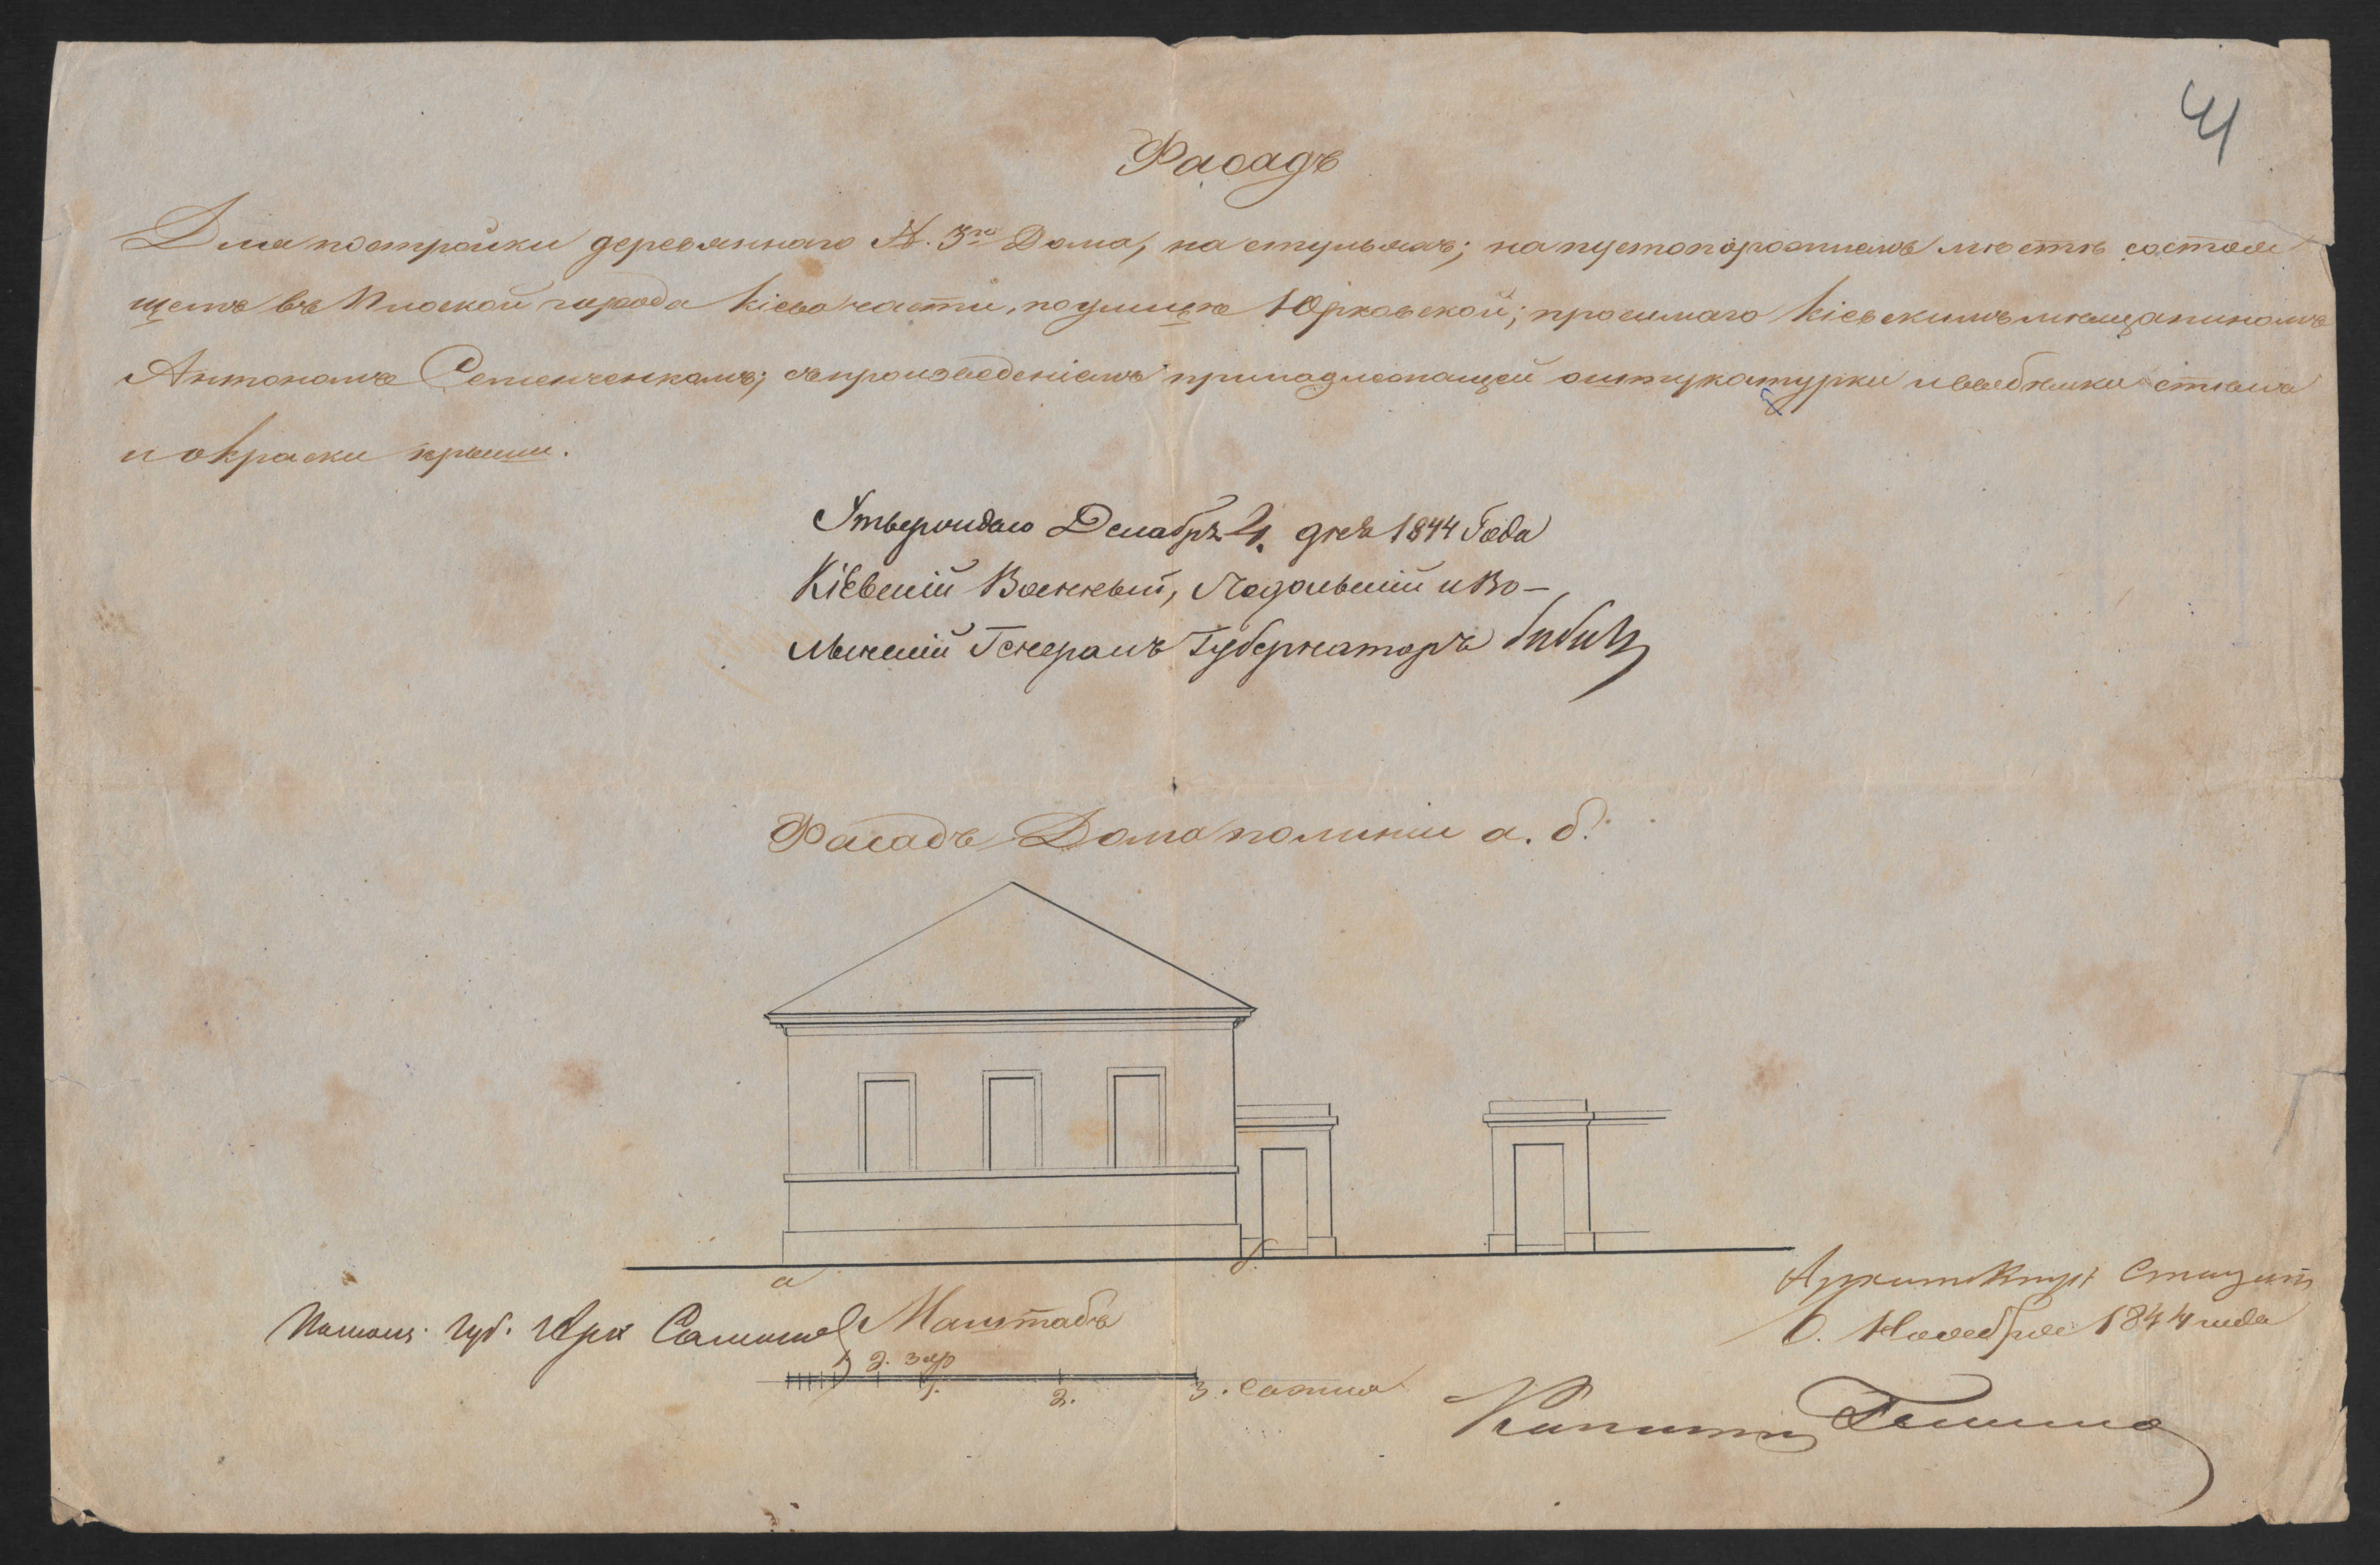 41
Фасадъ
Для постройки деревяннаго №. 3го Дома, на стульяхъ; на пустопорожнемъ мѣстѣ состоя
щемъ въ Плоской города Кіева части, по улицѣ Юрковской; просимаго Кіевскимъ мѣщаниномъ
Антономъ Семенченкомъ; съ произведеніемъ принадлежащей оштукатурки и побѣлки стѣнъ
и окраски крыши.
Утверждаю Декабря 4. дня 1844 Года
Кіевскій Военный, Подольскій и Во-
лынскій Генералъ Губернаторъ Бибик
Фасадъ Дома по линіи а. б.
а б
Архитекторъ
Помощ. Губ. Арх
Масштабъ
Ноября 1844 года
1 2. 3 ар
1. 2. 3. сажня
Капитан